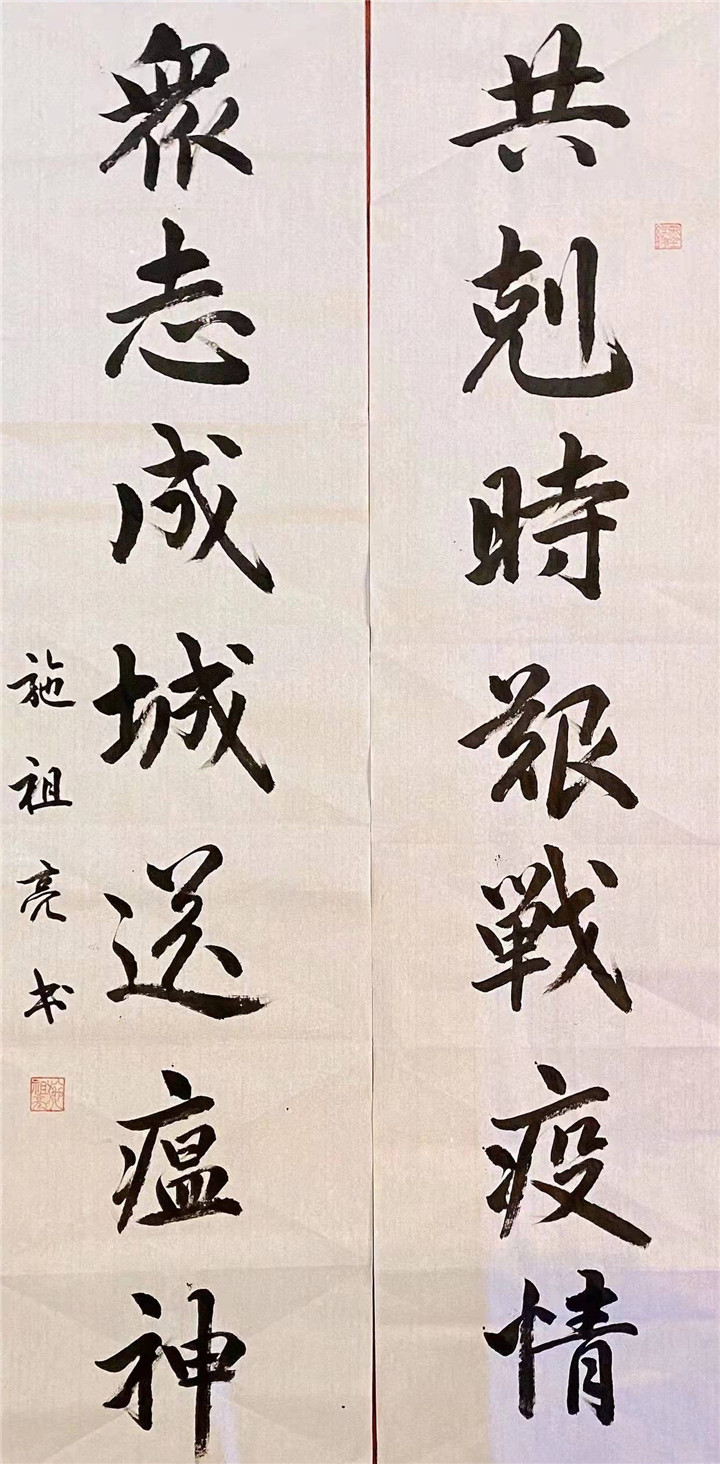 共剋時艱戰疫情
衆志成城送瘟神
施祖亮书